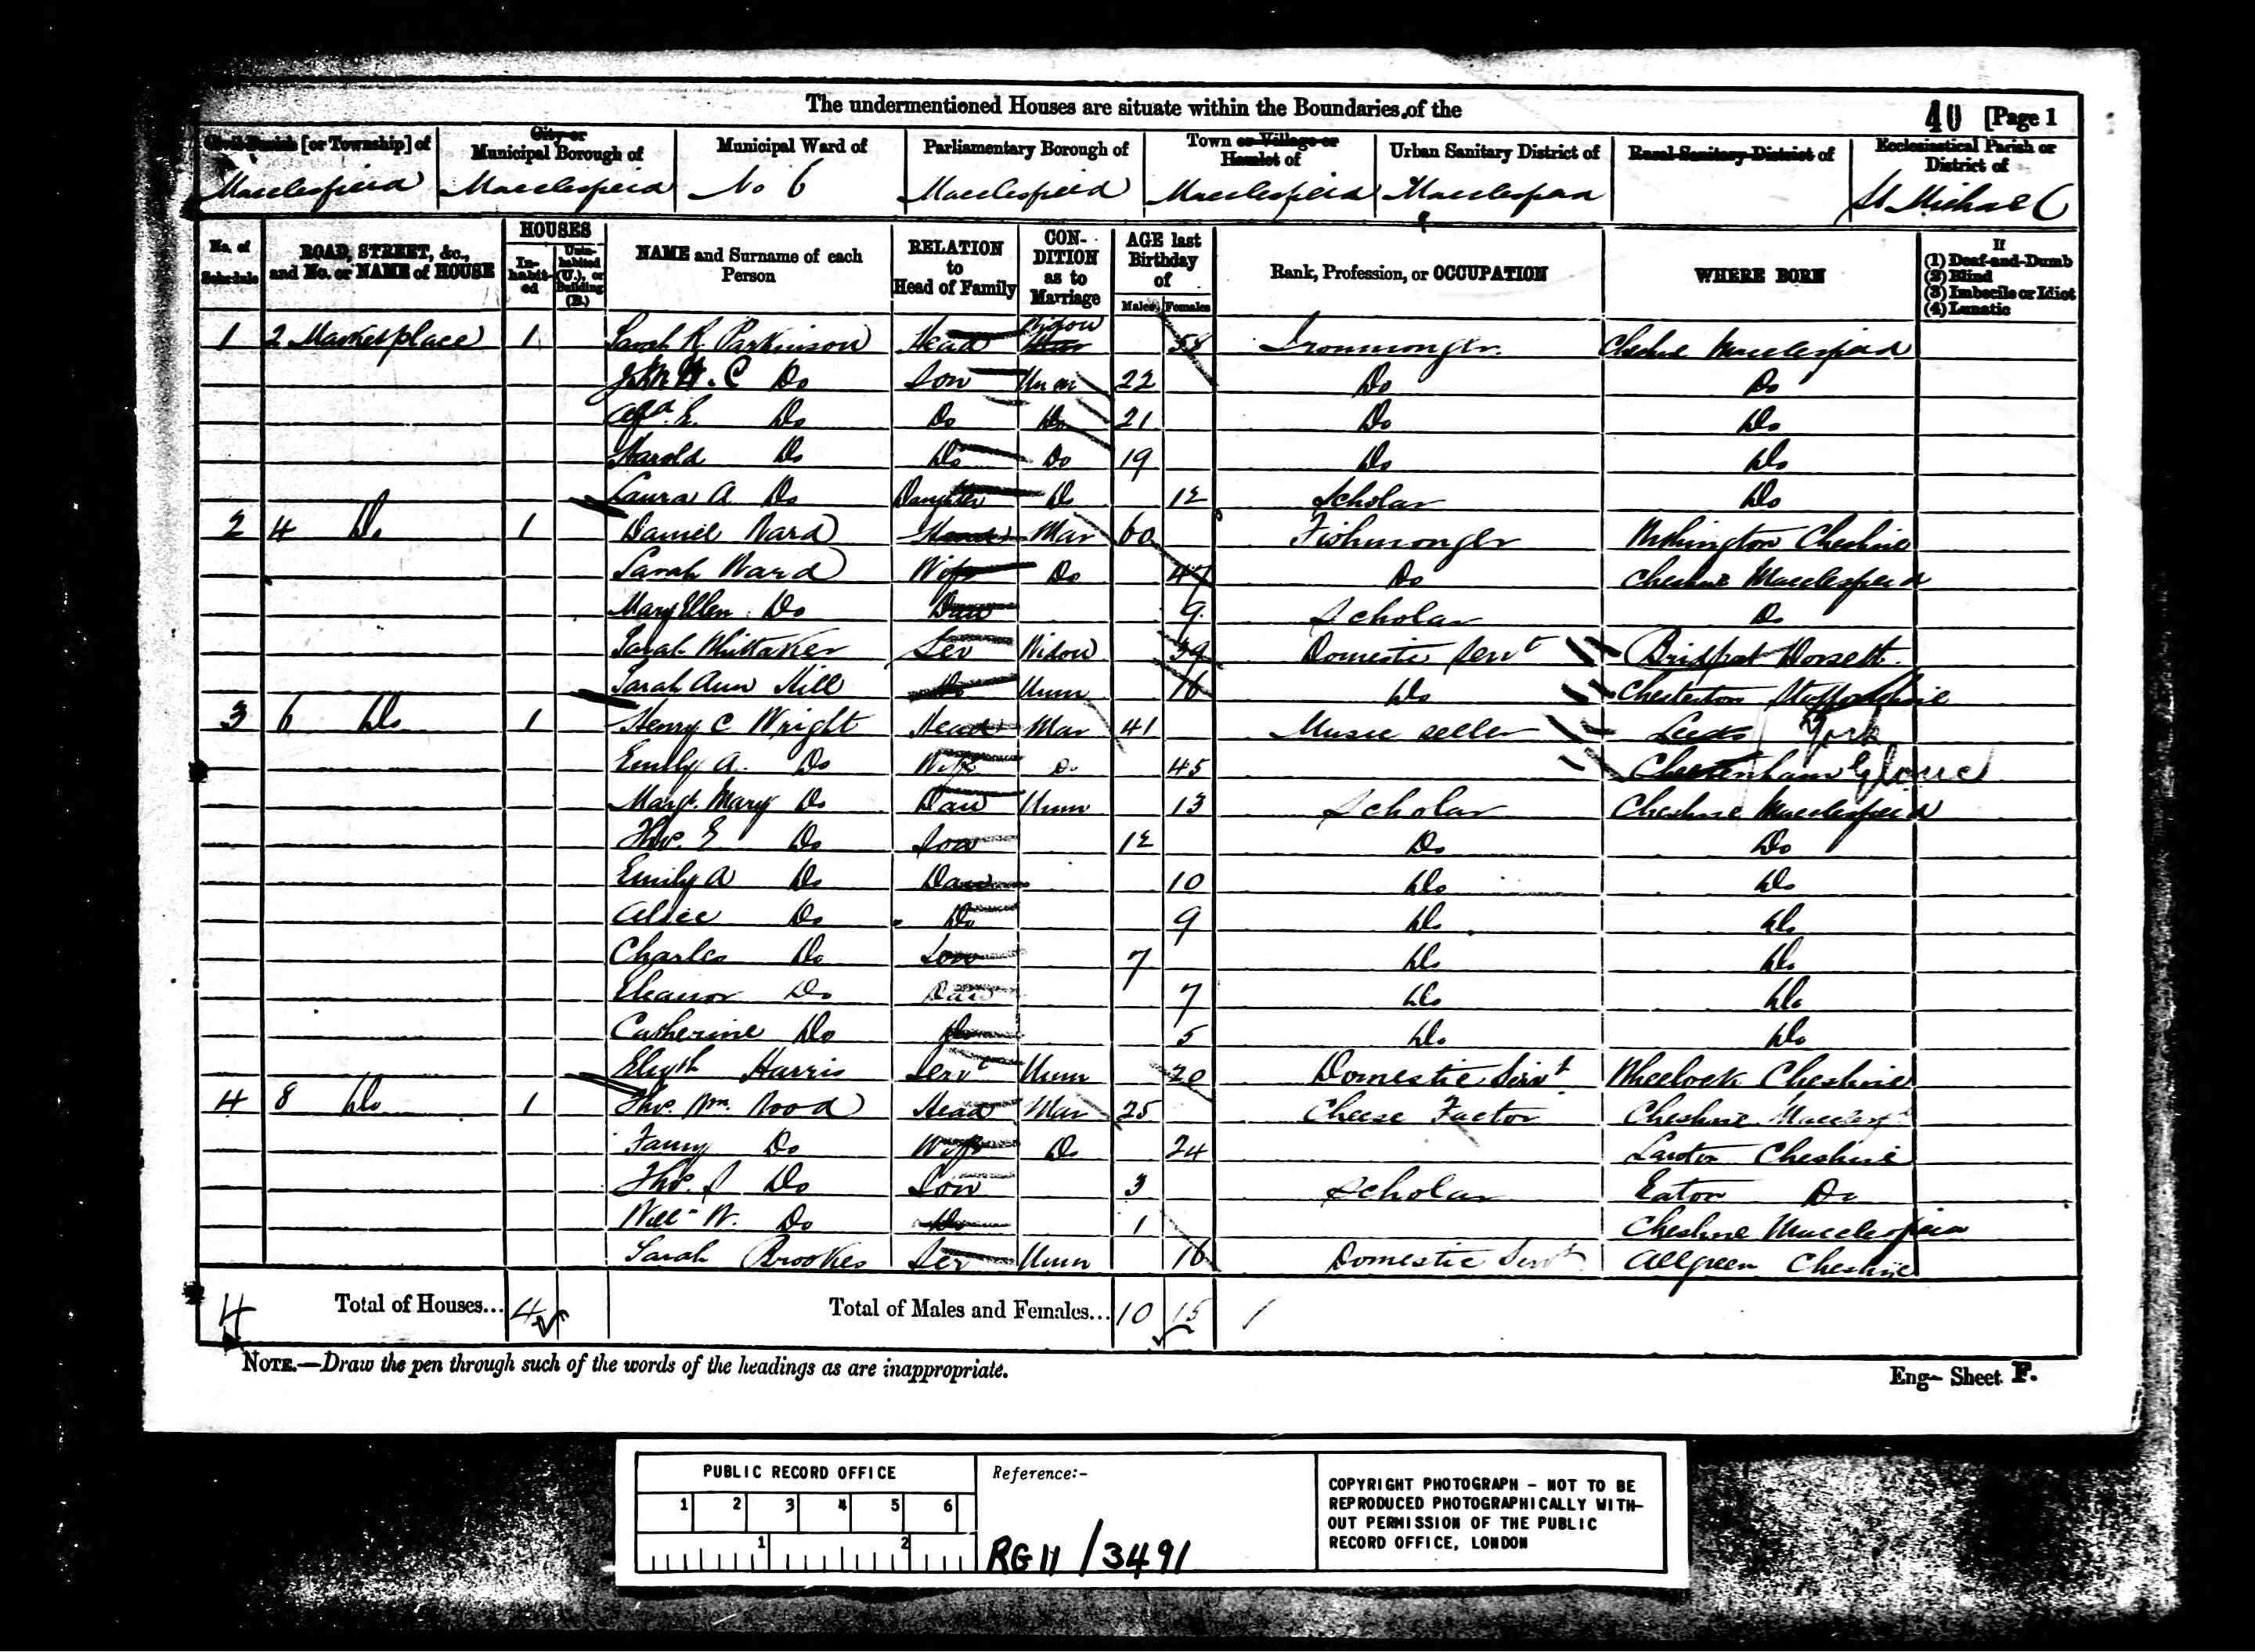 The undermentioned Houses are situate within the Boundaries of the
40 [Page 1
Civil Parish [or Township] of
City or Municipal Borough of
Municipal Ward of
Parliamentary Borough of
Town or Village or Hamlet of
Urban Sanitary District of
Rural Sanitary District of
Ecclesiastical Parish or District of
Macclesfield Macclesfield No 6 Macclesfield Macclesfield Macclesfield St Michael
No. of Schedule
ROAD, STREET, &c., and No. or NAME of HOUSE
HOUSES
In-habit-ed
Unin-habited (U.), or Building (B.)
NAME and Surname of each Person
RELATION to Head of Family
CON-DITION as to Marriage
AGE last Birthday of
Males Females
Rank, Profession, or OCCUPATION
WHERE BORN
If
(1) Deaf-and-Dumb
(2) Blind
(3) Imbecile or Idiot
(4) Lunatic
1 2 Marketplace 1 Sarah R Parkinson Head Widow Mar 58 Ironmonger Cheshire Macclesfield
John W. C Do Son Unm 22 Do Do
Alfd. E. Do Do Do 21 Do Do
Harold Do Do Do 19 Do Do
Laura A Do Daughter Do 12 Scholar Do
2 4 Do 1 Daniel Ward Head Mar 60 Fishmonger Cheshire
Sarah Ward Wife Do 47 Do Cheshire Macclesfield
Mary Ellen Do Dau 9 Scholar Do
Sarah Whittaker Ser Widow 39 Domestic Servt Bridport Dorsett
Sarah Ann Hill Do Unm 16 Do Chesterton Staffordshire
3 6 Do 1 Henry C Wright Head Mar 41 Music seller Leeds York
Emily A. Do Wife Do 45 Cheltenham Glouc
Margt. Mary Do Dau Unm 13 Scholar Cheshire Macclesfield
Thos. E Do Son 12 Do Do
Emily A Do Dau 10 Do Do
Alice Do Do 9 Do Do
Charles Do Son 7 Do Do
Eleanor Do Dau 7 Do Do
Catherine Do Do 5 Do Do
Elizth Harris Servt Unm 20 Domestic Servt Wheelock Cheshire
4 8 Do 1 Thos. Wm. Wood Head Mar 25 Cheese Factor Cheshire
Fanny Do Wife Do 24 Cheshire
Thos. J Do Son 3 Scholar Eaton Do
Willm W. Do Do 1 Cheshire Macclesfield
Sarah Brookes Ser Unm 16 Domestic Servt Allgreen Cheshire
4 Total of Houses... 4 Total of Males and Females... 10 15
NOTE.—Draw the pen through such of the words of the headings as are inappropriate.
Eng— Sheet F.
PUBLIC RECORD OFFICE
1 2 3 4 5 6
1 2
Reference:-
RG 11 / 3491
COPYRIGHT PHOTOGRAPH - NOT TO BE
REPRODUCED PHOTOGRAPHICALLY WITH-
OUT PERMISSION OF THE PUBLIC
RECORD OFFICE, LONDON